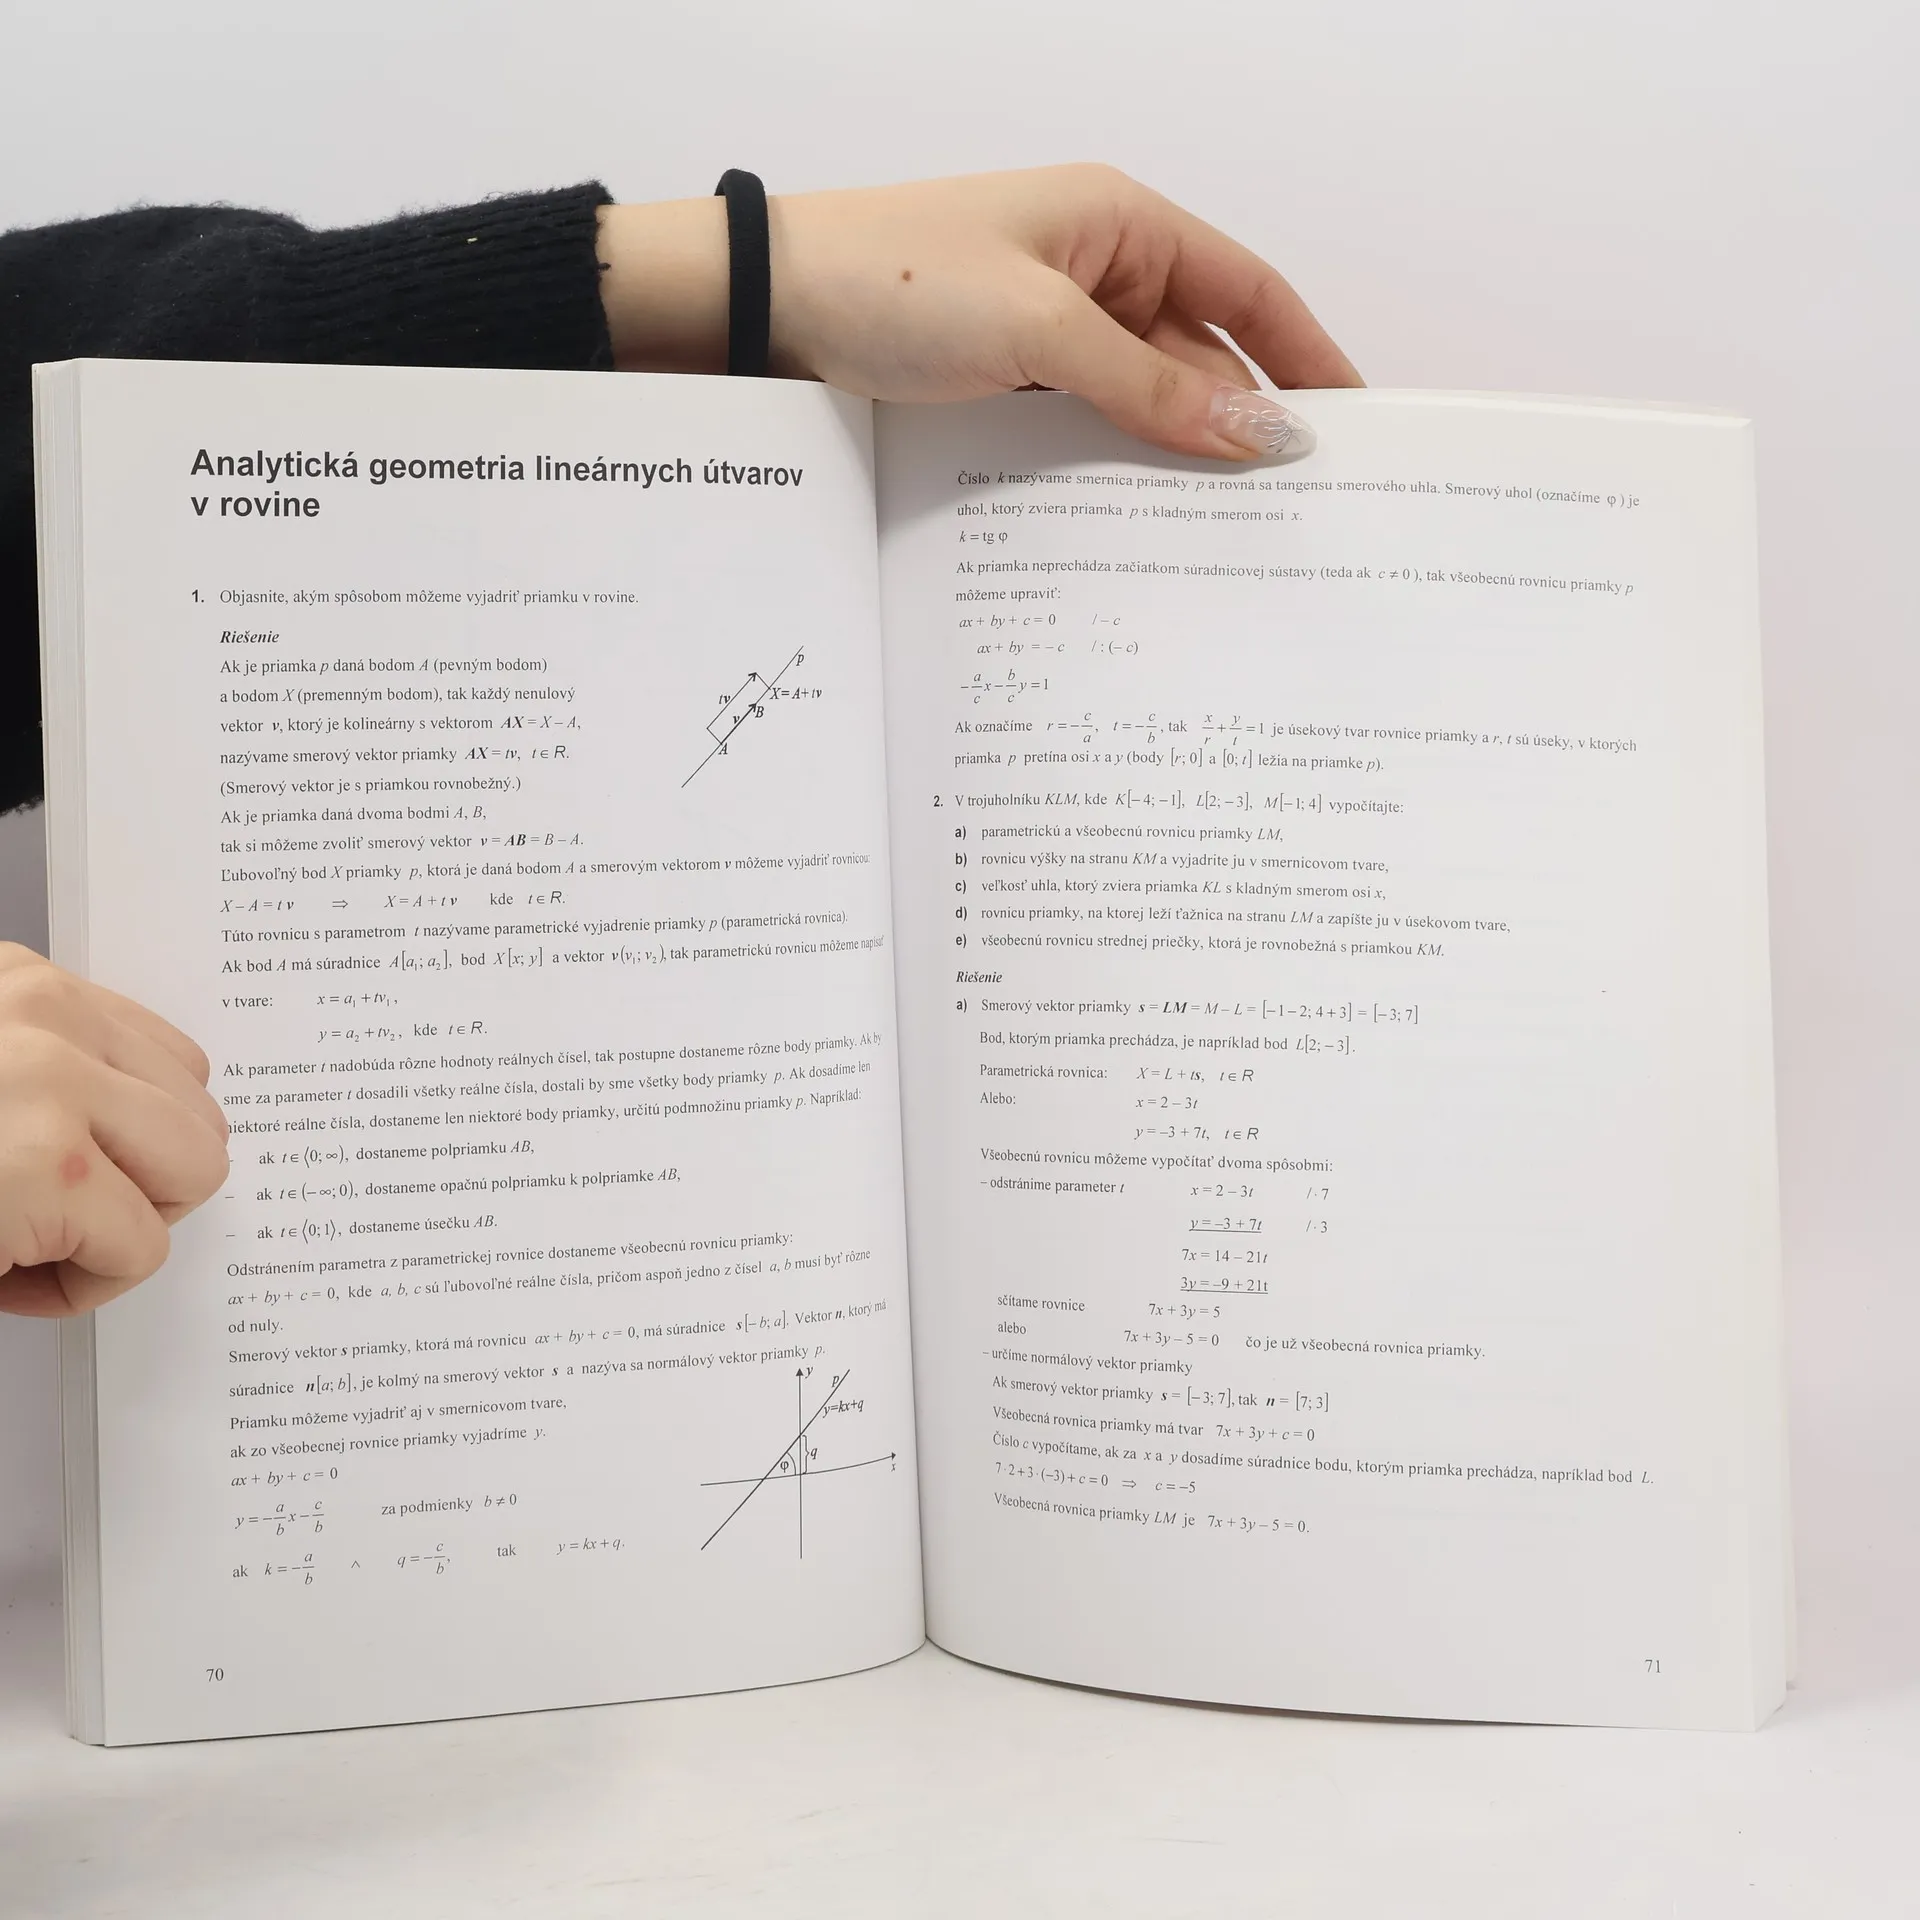 Analytická geometria lineárnych útvarov
v rovine
1. Objasnite, akým spôsobom môžeme vyjadriť priamku v rovine.
Riešenie
Ak je priamka p daná bodom A (pevným bodom)
a bodom X (premenným bodom), tak každý nenulový
vektor v, ktorý je kolineárny s vektorom AX = X – A,
nazývame smerový vektor priamky AX = tv, t ∈ R.
(Smerový vektor je s priamkou rovnobežný.)
Ak je priamka daná dvoma bodmi A, B,
tak si môžeme zvoliť smerový vektor v = AB = B – A.
p
tv
X= A+ tv
v
B
A
Ľubovoľný bod X priamky p, ktorá je daná bodom A a smerovým vektorom v môžeme vyjadriť rovnicou:
X – A = t v ⇒ X = A + t v kde t ∈ R.
Túto rovnicu s parametrom t nazývame parametrické vyjadrenie priamky p (parametrická rovnica).
Ak bod A má súradnice A[a₁; a₂], bod X[x; y] a vektor v(v₁; v₂), tak parametrickú rovnicu môžeme napísať
v tvare: x = a₁ + tv₁,
y = a₂ + tv₂, kde t ∈ R.
Ak parameter t nadobúda rôzne hodnoty reálnych čísel, tak postupne dostaneme rôzne body priamky. Ak by
sme za parameter t dosadili všetky reálne čísla, dostali by sme všetky body priamky p. Ak dosadíme len
niektoré reálne čísla, dostaneme len niektoré body priamky, určitú podmnožinu priamky p. Napríklad:
– ak t ∈ ⟨0; ∞), dostaneme polpriamku AB,
– ak t ∈ (– ∞; 0), dostaneme opačnú polpriamku k polpriamke AB,
– ak t ∈ ⟨0; 1⟩, dostaneme úsečku AB.
Odstránením parametra z parametrickej rovnice dostaneme všeobecnú rovnicu priamky:
ax + by + c = 0, kde a, b, c sú ľubovoľné reálne čísla, pričom aspoň jedno z čísel a, b musí byť rôzne
od nuly.
Smerový vektor s priamky, ktorá má rovnicu ax + by + c = 0, má súradnice s[– b; a]. Vektor n, ktorý má
súradnice n[a; b], je kolmý na smerový vektor s a nazýva sa normálový vektor priamky p.
Priamku môžeme vyjadriť aj v smernicovom tvare,
ak zo všeobecnej rovnice priamky vyjadríme y.
ax + by + c = 0
y = –a/b x – c/b za podmienky b ≠ 0
ak k = –a/b ∧ q = –c/b, tak y = kx + q.
y
p
y=kx+q
q
φ
x
70
Číslo k nazývame smernica priamky p a rovná sa tangensu smerového uhla. Smerový uhol (označíme φ ) je
uhol, ktorý zviera priamka p s kladným smerom osi x.
k = tg φ
Ak priamka neprechádza začiatkom súradnicovej sústavy (teda ak c ≠ 0 ), tak všeobecnú rovnicu priamky p
môžeme upraviť:
ax + by + c = 0 / – c
ax + by = – c / : (– c)
–a/c x – b/c y = 1
Ak označíme r = –c/a, t = –c/b, tak x/r + y/t = 1 je úsekový tvar rovnice priamky a r, t sú úseky, v ktorých
priamka p pretína osi x a y (body [r; 0] a [0; t] ležia na priamke p).
2. V trojuholníku KLM, kde K[– 4; – 1], L[2; – 3], M[– 1; 4] vypočítajte:
a) parametrickú a všeobecnú rovnicu priamky LM,
b) rovnicu výšky na stranu KM a vyjadrite ju v smernicovom tvare,
c) veľkosť uhla, ktorý zviera priamka KL s kladným smerom osi x,
d) rovnicu priamky, na ktorej leží ťažnica na stranu LM a zapíšte ju v úsekovom tvare,
e) všeobecnú rovnicu strednej priečky, ktorá je rovnobežná s priamkou KM.
Riešenie
a) Smerový vektor priamky s = LM = M – L = [– 1 – 2; 4 + 3] = [– 3; 7]
Bod, ktorým priamka prechádza, je napríklad bod L[2; – 3].
Parametrická rovnica: X = L + ts, t ∈ R
Alebo: x = 2 – 3t
y = –3 + 7t, t ∈ R
Všeobecnú rovnicu môžeme vypočítať dvoma spôsobmi:
– odstránime parameter t x = 2 – 3t / · 7
y = –3 + 7t / · 3
7x = 14 – 21t
3y = –9 + 21t
sčítame rovnice 7x + 3y = 5
alebo 7x + 3y – 5 = 0 čo je už všeobecná rovnica priamky.
– určíme normálový vektor priamky
Ak smerový vektor priamky s = [– 3; 7], tak n = [7; 3]
Všeobecná rovnica priamky má tvar 7x + 3y + c = 0
Číslo c vypočítame, ak za x a y dosadíme súradnice bodu, ktorým priamka prechádza, napríklad bod L.
7 · 2 + 3 · (–3) + c = 0 ⇒ c = –5
Všeobecná rovnica priamky LM je 7x + 3y – 5 = 0.
71